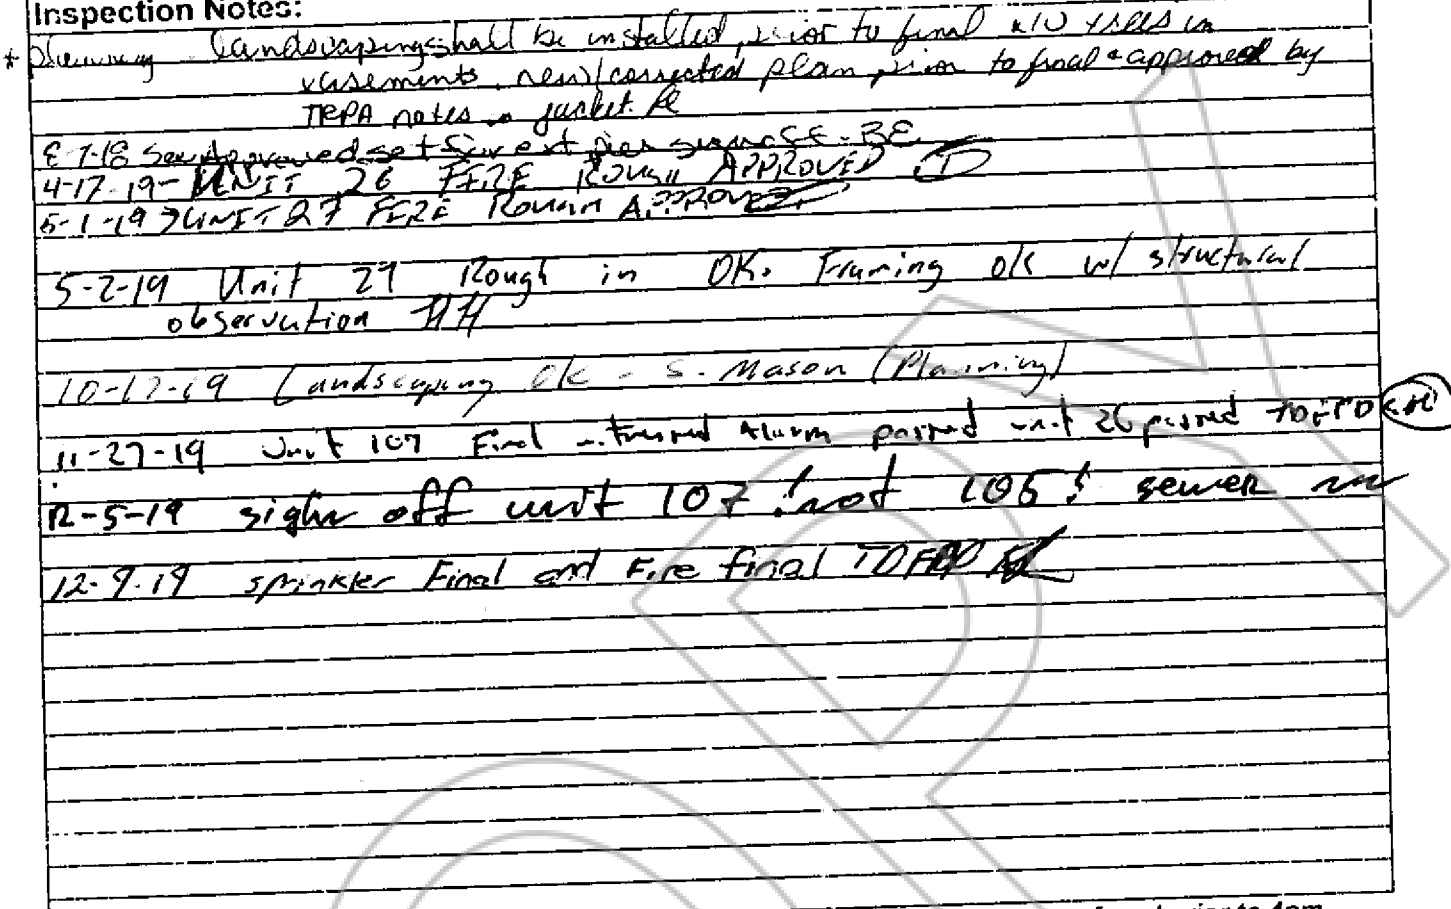 Inspection Notes:
* Planning Landscaping shall be installed prior to final NO trees in
easements. new/corrected plan prior to final & approved by
TRPA notes in jacket.
8-7-18 See Approved set for ext pier signage - BE
4-17-19 - UNIT 26 FIRE ROUGH APPROVED
5-1-19 > UNIT 27 FIRE ROUGH APPROVED
5-2-19 Unit 27 Rough in OK. Framing ok w/ structural
observation HH
10-17-19 Landscaping Ok - S. Mason (Planning)
11-27-19 Unit 107 Final Alarm passed unit 26 passed TDFPD
12-5-19 sighn off unit 107 ! not 106 ! sewer
12-9-19 sprinkler Final and Fire final TDFPD
prior to 4pm
COPY